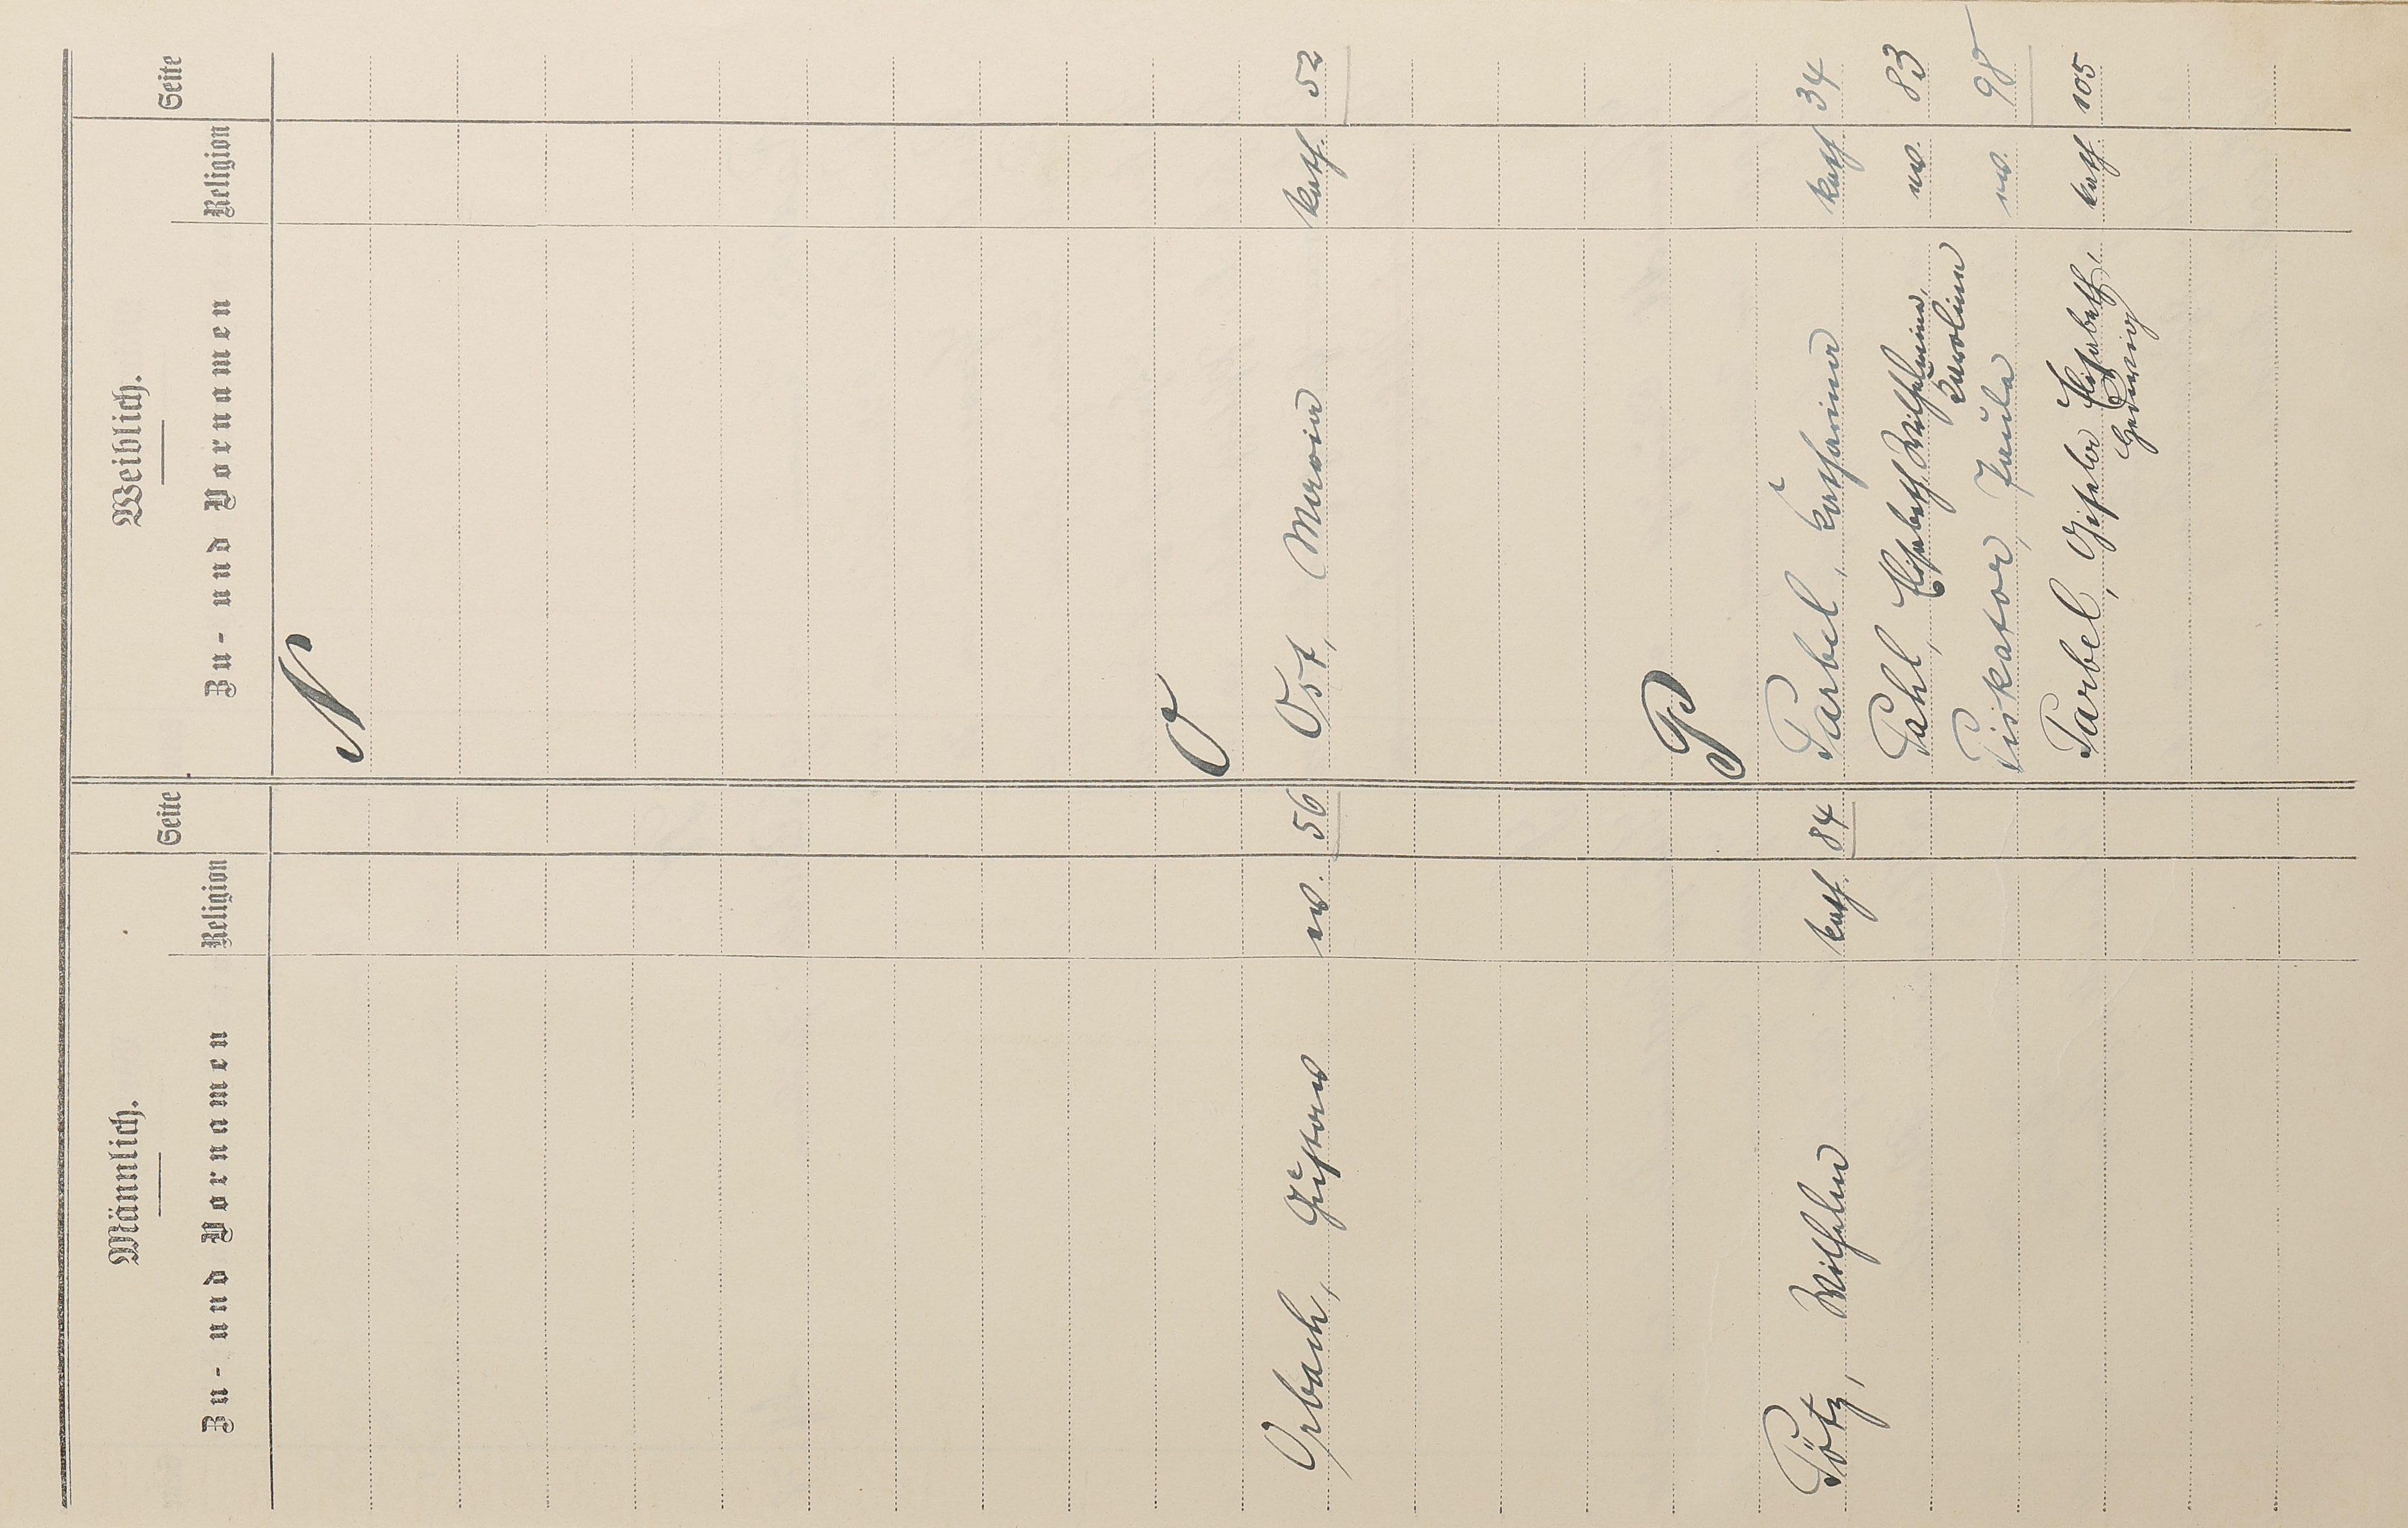 Männlich.
Weiblich.
Zu- und Vornamen Religion Seite
Zu- und Vornamen Religion Seite
N
O
Orbach, Gustav ev. 56
Ost, Maria kath. 52
P
Pötz, Wilhelm kath. 84
Parbel, Katharina kath 34
Pahl, Elisabeth Wilhelmina, ev. 83
Karolina
Piskator, Paula ev. 98
Parbel, Gisela Elisabeth, kath 105
Hedwig